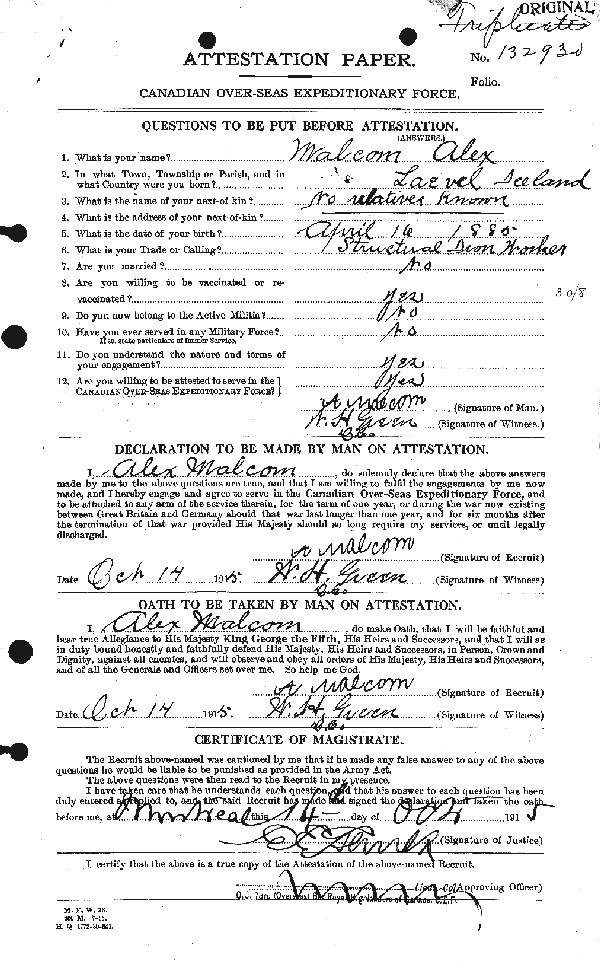 ORIGINAL
Triplicate
ATTESTATION PAPER.
No. 132930
Folio.
CANADIAN OVER-SEAS EXPEDITIONARY FORCE.
QUESTIONS TO BE PUT BEFORE ATTESTATION.
(ANSWERS.)
1. What is your name? Malcom Alex
2. In what Town, Township or Parish, and in
what Country were you born? Iceland
3. What is the name of your next-of-kin? No relatives known
4. What is the address of your next-of-kin?
5. What is the date of your birth? April 16 1880
6. What is your Trade or Calling? Structural Iron Worker
7. Are you married? No
8. Are you willing to be vaccinated or re-
vaccinated? Yes
9. Do you now belong to the Active Militia? No
10. Have you ever served in any Military Force? No
If so, state particulars of former Service.
11. Do you understand the nature and terms of
your engagement? Yes
12. Are you willing to be attested to serve in the
CANADIAN OVER-SEAS EXPEDITIONARY FORCE? Yes
A Malcom (Signature of Man.)
W. H. Green (Signature of Witness.)
DECLARATION TO BE MADE BY MAN ON ATTESTATION.
I, Alex Malcom, do solemnly declare that the above answers
made by me to the above questions are true, and that I am willing to fulfil the engagements by me now
made, and I hereby engage and agree to serve in the Canadian Over-Seas Expeditionary Force, and
to be attached to any arm of the service therein, for the term of one year, or during the war now existing
between Great Britain and Germany should that war last longer than one year, and for six months after
the termination of that war provided His Majesty should so long require my services, or until legally
discharged.
A Malcom (Signature of Recruit)
Date Oct 14 1915 W. H. Green (Signature of Witness)
OATH TO BE TAKEN BY MAN ON ATTESTATION.
I, Alex Malcom, do make Oath, that I will be faithful and
bear true Allegiance to His Majesty King George the Fifth, His Heirs and Successors, and that I will as
in duty bound honestly and faithfully defend His Majesty, His Heirs and Successors, in Person, Crown and
Dignity, against all enemies, and will observe and obey all orders of His Majesty, His Heirs and Successors,
and of all the Generals and Officers set over me. So help me God.
A Malcom (Signature of Recruit)
Date Oct 14 1915 W. H. Green (Signature of Witness)
CERTIFICATE OF MAGISTRATE.
The Recruit above-named was cautioned by me that if he made any false answer to any of the above
questions he would be liable to be punished as provided in the Army Act.
The above questions were then read to the Recruit in my presence.
I have taken care that he understands each question, and that his answer to each question has been
duly entered as replied to, and the said Recruit has made and signed the declaration and taken the oath
before me, at Montreal this 14 day of Oct 1915
(Signature of Justice)
I certify that the above is a true copy of the Attestation of the above-named Recruit.
(Approving Officer)
M. F. W. 23.
H. Q. 1772-39-841.